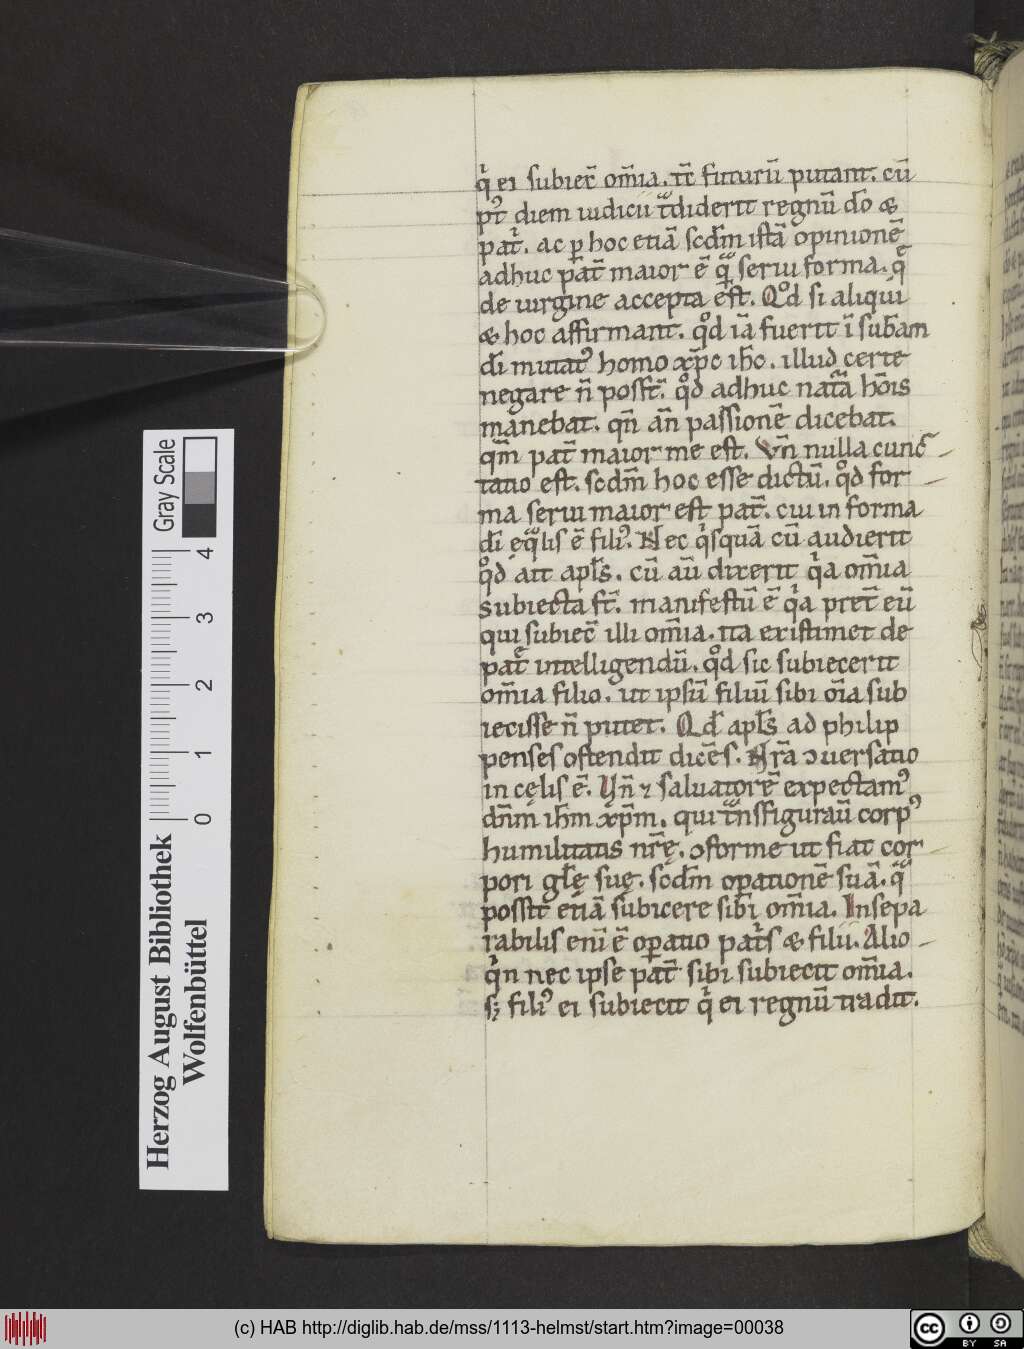 qͥ ei subiec̄ om̄ia. tc̄ futurū putant. cū
pꝰt diem iudicii tͣdiderit regnū do̅ &
patͥ. ac ꝑ hoc etiā scd̄m istā opinionē
adhuc pat̄ maior ē qͣꝫ serui forma. q̄
de uirgine accepta est. Qͦd si aliqui
& hoc affirmant. qͦd iā fuerit ī sub̄am
dī mutatꝰ homo xp̄c ih̄c. illud certe
negare n̄ poss̄t. qͦd adhuc natͣā ho̅is
manebat. qn̄ an̄ passionē dicebat.
qm̄ pat̄ maior me est. Vn̄ nulla cunc
tatio est. scd̄m hoc esse dictū. qͦd for
ma serui maior est pat̄. cui in forma
dī ęqͣlis ē filiꝰ. Nec qͥsquā cū audierit
qͦd ait apl̄s. cū aū dixerit qͥa om̄ia
subiecta st̄. manifestū ē qͥa pret̄ eū
qui subiec̄ illi om̄ia. ita existimet de
pat̄e intelligendū. qͦd sic subiecerit
om̄ia filio. ut ipsū filiū sibi oī̄a sub
iecisse n̄ putet. Qd̄ apl̄s ad philip
penses ostendit dicēs. Nr̄a ɔuersatio
in cęlis ē. Vn̄ ⁊ saluatorē expectamꝰ
dn̄m ih̄m xp̄m. qui tͣnsfigurau̅ corpꝰ
humilitatis nr̄ę. ɔforme ut fiat cor
pori gl̄ę suę. scd̄m oꝑationē suā. qͣ
possit etiā subicere sibi om̄ia. Insepa
rabilis enī ē oꝑatio patͥs & filii. Alio
qͥn nec ipse pat̄ sibi subiecit om̄ia.
sꝫ filiꝰ ei subiecit qͥ ei regnū tradit.
Gray Scale
0 1 2 3 4
Herzog August Bibliothek
Wolfenbüttel
(c) HAB http://diglib.hab.de/mss/1113-helmst/start.htm?image=00038
cc BY SA